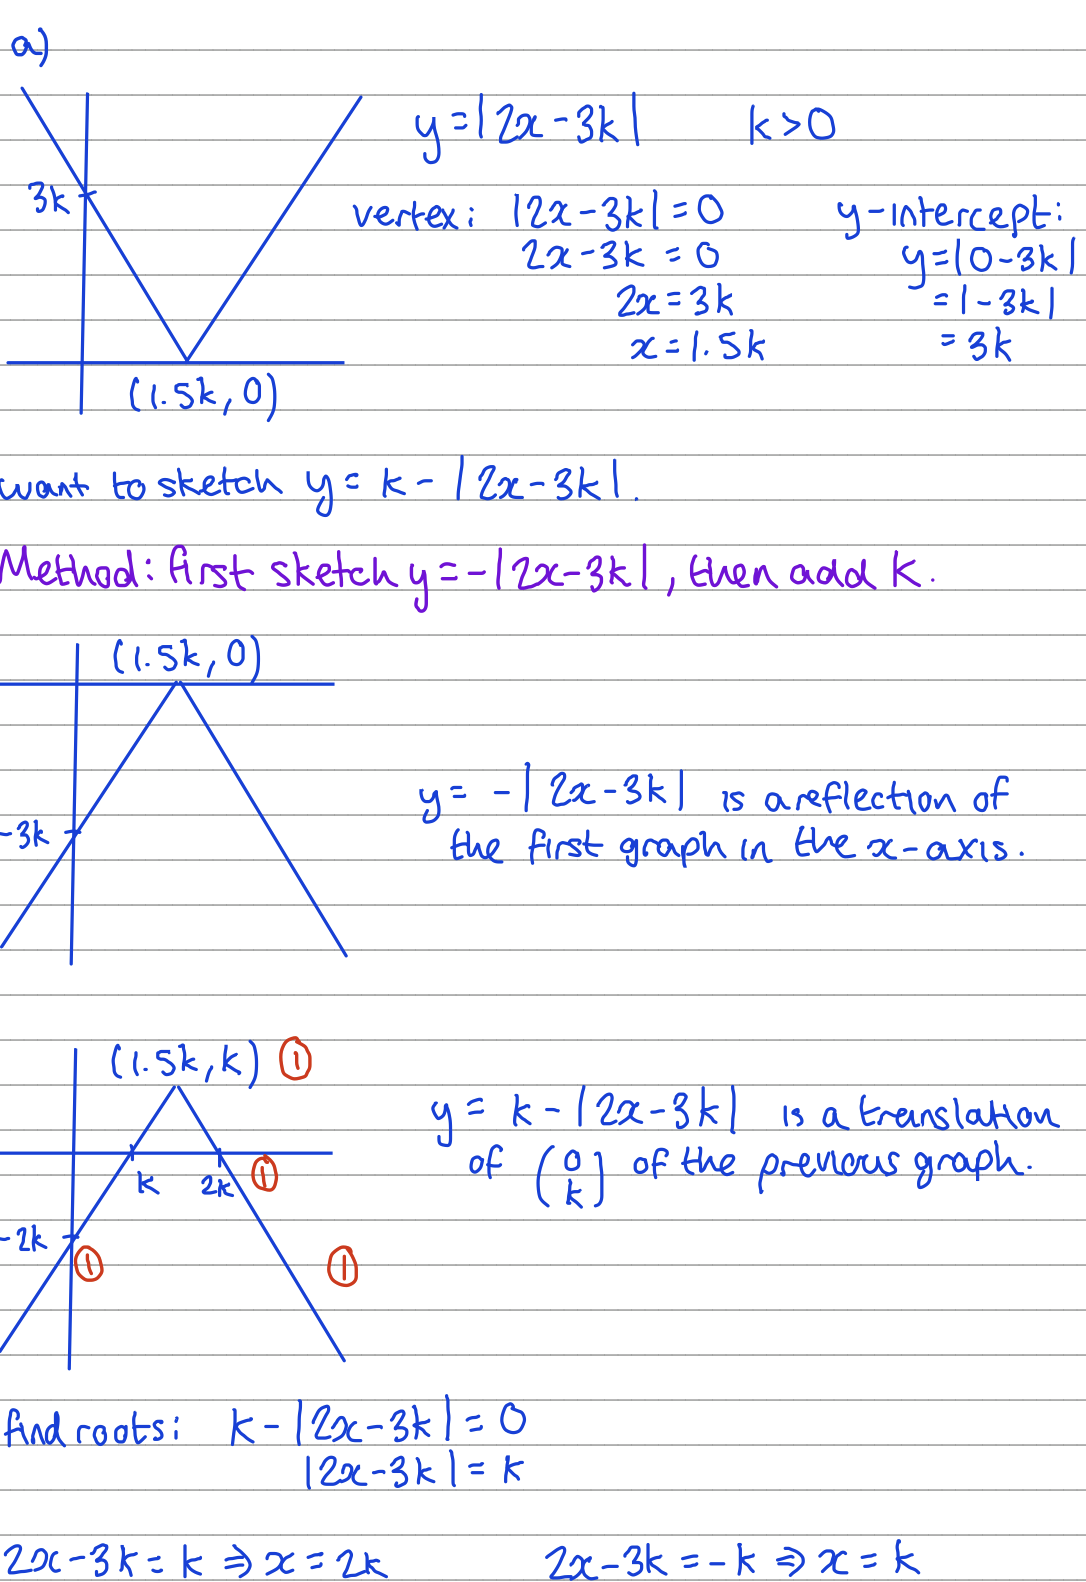 a)
y=|2x-3k|    k>0
3k
vertex: |2x-3k|=0
2x-3k=0
2x=3k
x=1.5k
y-intercept:
y=|0-3k|
=|-3k|
=3k
(1.5k,0)
want to sketch y= k-|2x-3k|.
Method: first sketch y=-|2x-3k|, then add k.
(1.5k,0)
-3k
y= -|2x-3k| is a reflection of
the first graph in the x-axis.
(1.5k,k) ①
k 2k ①
-2k
① ①
y= k-|2x-3k| is a translation
of (0 k) of the previous graph.
find roots: k-|2x-3k|=0
|2x-3k|=k
2x-3k=k ⇒ x=2k    2x-3k=-k ⇒ x=k